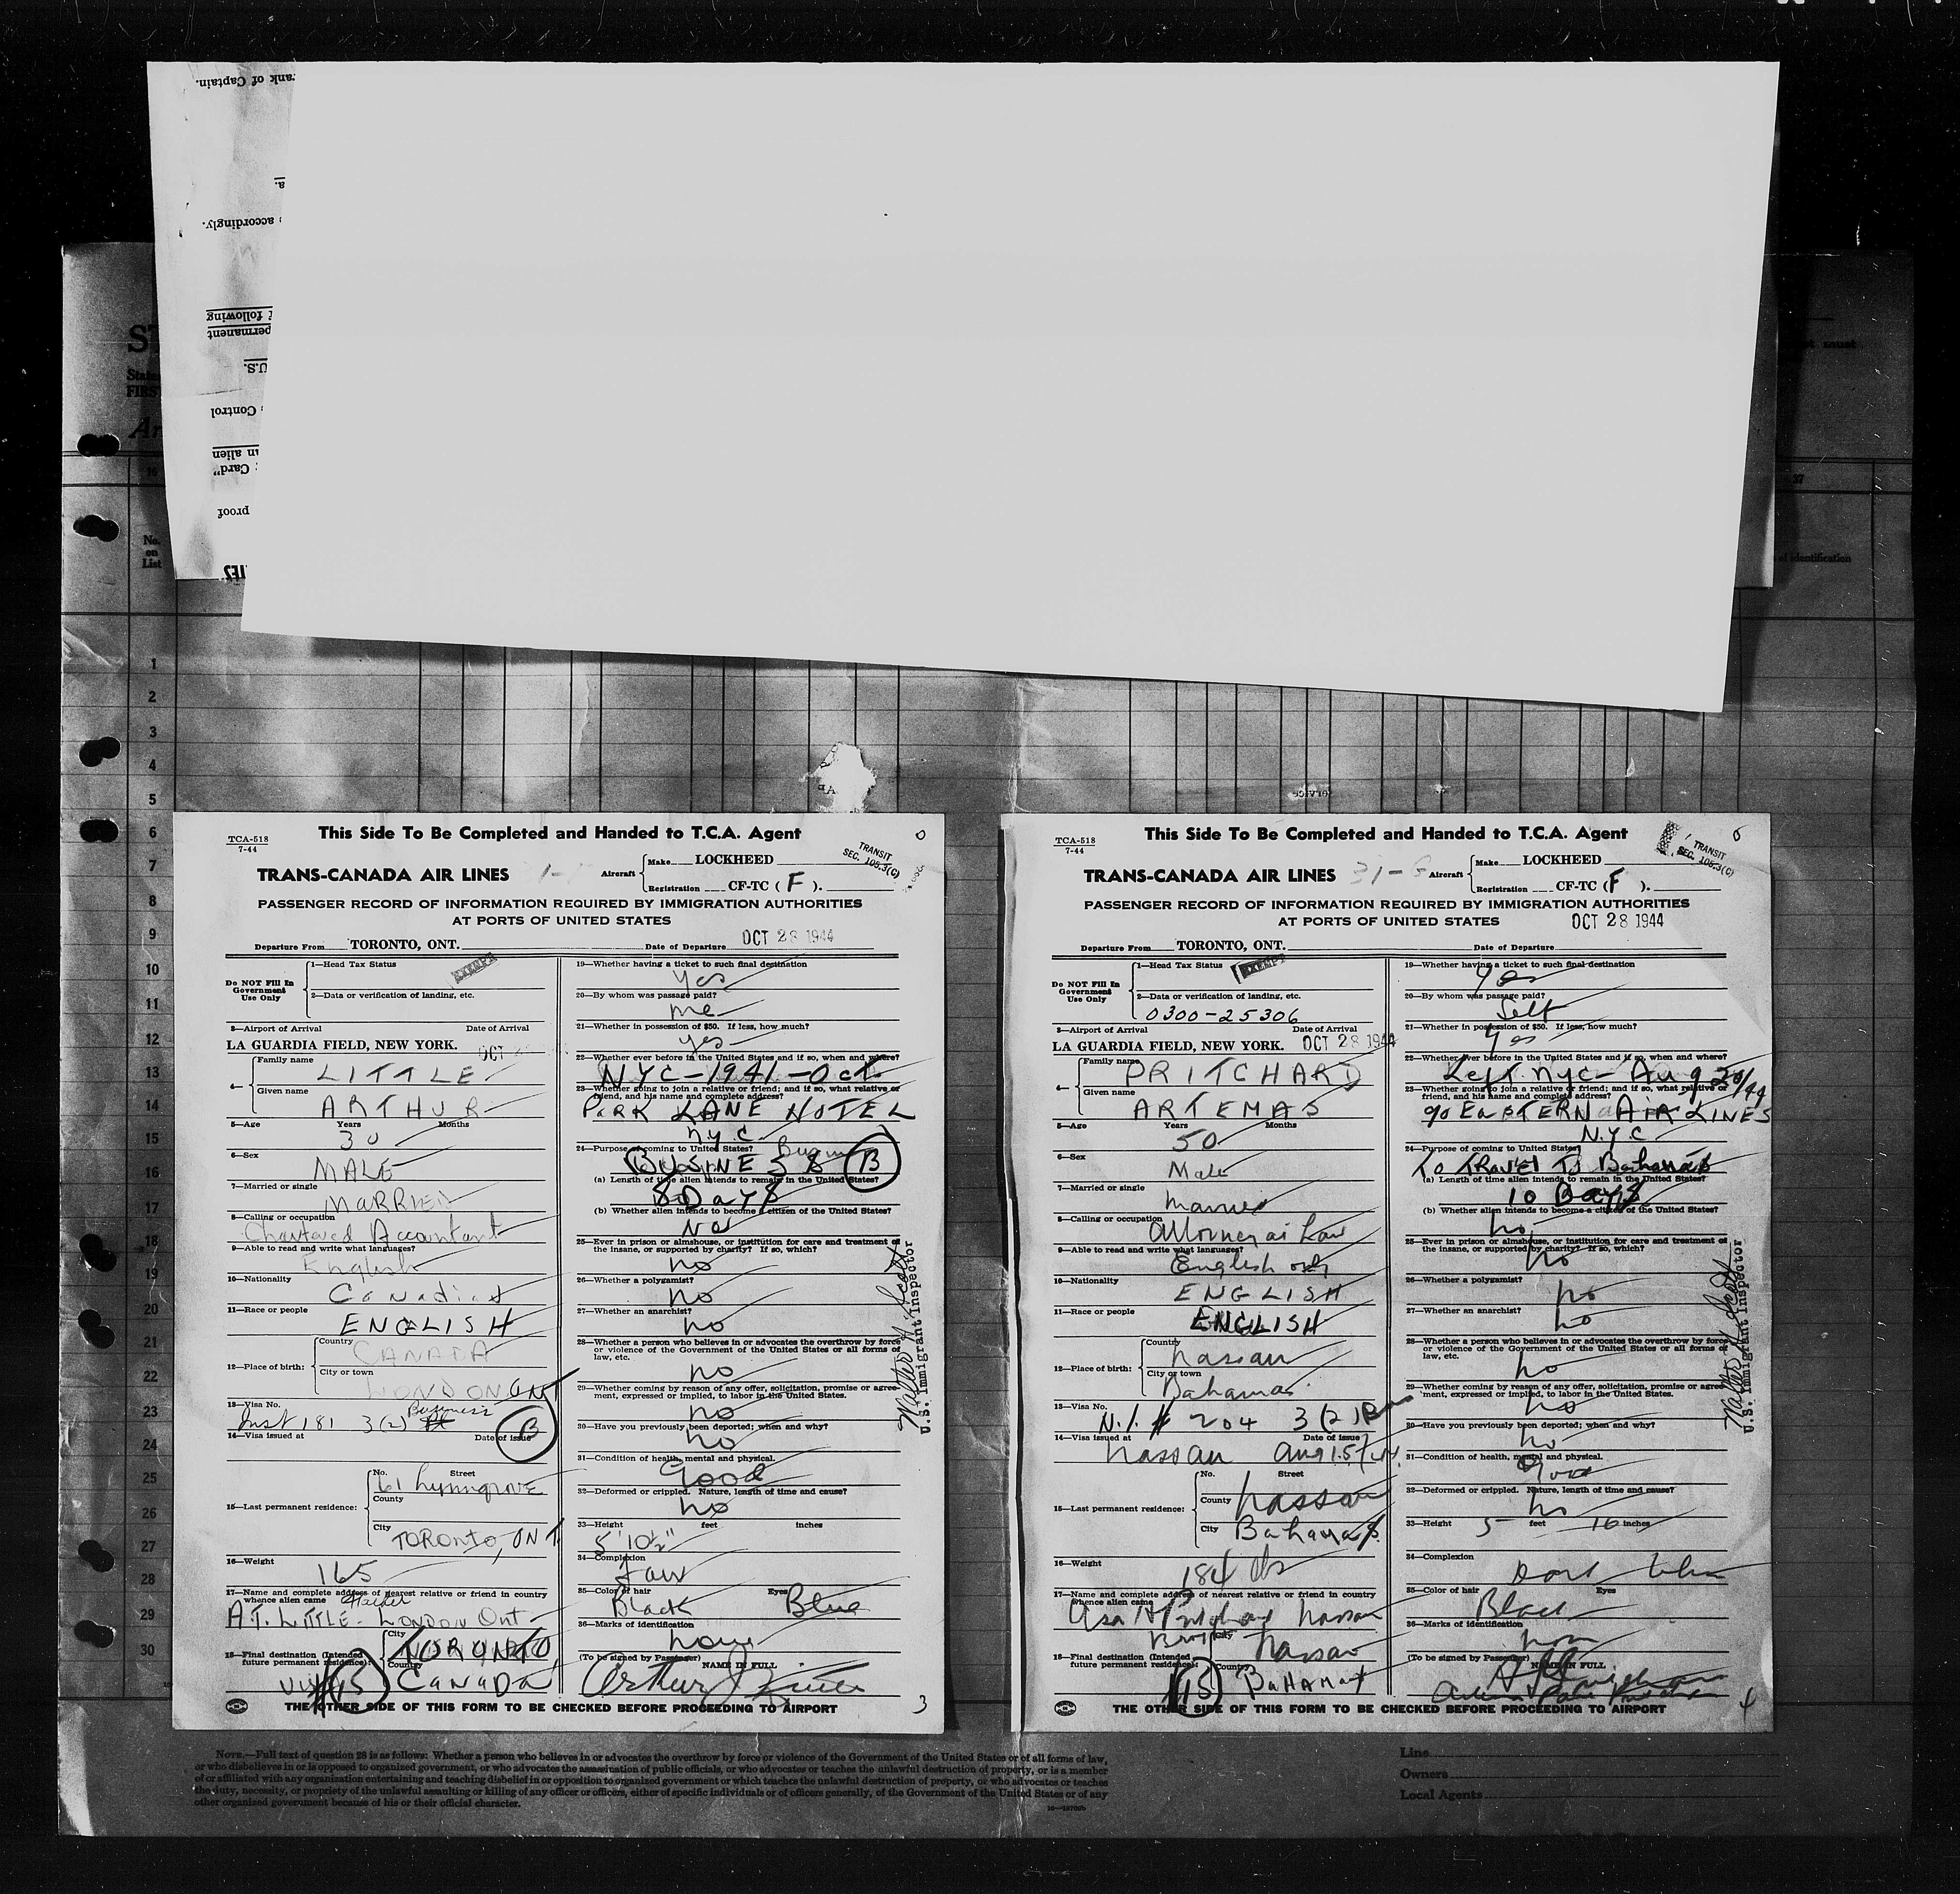 ank of Captain.
a.
accordingly.
following
permanent
U.S.
Control
an alien
Card"
proof
No.
on
List
37
of identification
1
2
3
4
5
6
7
8
9
10
11
12
13
14
15
16
17
18
19
20
21
22
23
24
25
26
27
28
29
30
TCA-518
7-44
This Side To Be Completed and Handed to T.C.A. Agent
TRANSIT
SEC. 105.3(C)
TRANS-CANADA AIR LINES
Aircraft
Make LOCKHEED
Registration CF-TC (F).
PASSENGER RECORD OF INFORMATION REQUIRED BY IMMIGRATION AUTHORITIES
AT PORTS OF UNITED STATES
Departure From TORONTO, ONT. Date of Departure OCT 28 1944
Do NOT Fill In
Government
Use Only
1—Head Tax Status EXEMPT
2—Data or verification of landing, etc.
3—Airport of Arrival Date of Arrival
LA GUARDIA FIELD, NEW YORK. OCT
4— Family name LITTLE
Given name ARTHUR
5—Age Years 30 Months
6—Sex MALE
7—Married or single MARRIED
8—Calling or occupation Chartered Accountant
9—Able to read and write what languages? English
10—Nationality Canadian
11—Race or people ENGLISH
12—Place of birth: Country CANADA
City or town LONDON ONT
13—Visa No. Inst 181 3(2) Business
14—Visa issued at Date of issue B
15—Last permanent residence: No. Street 61
County
City TORONTO, ONT
16—Weight 165
17—Name and complete address of nearest relative or friend in country
whence alien came Father
A.T. LITTLE - LONDON Ont
18—Final destination (Intended
future permanent residence): City TORONTO
Country CANADA
19—Whether having a ticket to such final destination
Yes
20—By whom was passage paid?
me
21—Whether in possession of $50. If less, how much?
yes
22—Whether ever before in the United States and if so, when and where?
NYC-1941-Oct.
23—Whether going to join a relative or friend; and if so, what relative or
friend, and his name and complete address?
PARK LANE HOTEL
N.Y.C.
24—Purpose of coming to United States?
BUSINESS B
(a) Length of time alien intends to remain in the United States?
8 Days
(b) Whether alien intends to become a citizen of the United States?
No
25—Ever in prison or almshouse, or institution for care and treatment of
the insane, or supported by charity? If so, which?
no
26—Whether a polygamist?
no
27—Whether an anarchist?
no
28—Whether a person who believes in or advocates the overthrow by force
or violence of the Government of the United States or all forms of
law, etc.
no
29—Whether coming by reason of any offer, solicitation, promise or agree-
ment, expressed or implied, to labor in the United States.
no
30—Have you previously been deported; when and why?
no
31—Condition of health, mental and physical.
Good
32—Deformed or crippled. Nature, length of time and cause?
no
33—Height feet inches
5' 10½"
34—Complexion
Fair
35—Color of hair Eyes
Black Blue
36—Marks of identification
none
(To be signed by Passenger) NAME IN FULL
Arthur J Little
U.S. Immigrant Inspector
THE OTHER SIDE OF THIS FORM TO BE CHECKED BEFORE PROCEEDING TO AIRPORT
3
TCA-518
7-44
This Side To Be Completed and Handed to T.C.A. Agent
TRANSIT
SEC. 105.3(C)
TRANS-CANADA AIR LINES
Aircraft
Make LOCKHEED
Registration CF-TC (F).
PASSENGER RECORD OF INFORMATION REQUIRED BY IMMIGRATION AUTHORITIES
AT PORTS OF UNITED STATES
OCT 28 1944
Departure From TORONTO, ONT. Date of Departure
Do NOT Fill In
Government
Use Only
1—Head Tax Status EXEMPT
2—Data or verification of landing, etc.
0300-25306
3—Airport of Arrival Date of Arrival
LA GUARDIA FIELD, NEW YORK. OCT 28 1944
4— Family name PRITCHARD
Given name ARTEMAS
5—Age Years 50 Months
6—Sex Male
7—Married or single Married
8—Calling or occupation Attorney at Law
9—Able to read and write what languages? English only
10—Nationality ENGLISH
11—Race or people ENGLISH
12—Place of birth: Country Nassau
City or town Bahamas
13—Visa No. N.I. # 204 3(2)
14—Visa issued at Date of issue
Nassau Aug 15/44
15—Last permanent residence: No. Street
County Nassau
City Bahamas
16—Weight 184 lbs
17—Name and complete address of nearest relative or friend in country
whence alien came
Asa H Pritchard Nassau
18—Final destination (Intended
future permanent residence): City Nassau
Country BAHAMAS
19—Whether having a ticket to such final destination
Yes
20—By whom was passage paid?
Self
21—Whether in possession of $50. If less, how much?
Yes
22—Whether ever before in the United States and if so, when and where?
Left NYC- Aug 20/44
23—Whether going to join a relative or friend; and if so, what relative or
friend, and his name and complete address?
% EASTERN AIR LINES
N.Y.C
24—Purpose of coming to United States?
To TRAVEL To Bahamas
(a) Length of time alien intends to remain in the United States?
10 Days
(b) Whether alien intends to become a citizen of the United States?
no
25—Ever in prison or almshouse, or institution for care and treatment of
the insane, or supported by charity? If so, which?
no
26—Whether a polygamist?
no
27—Whether an anarchist?
no
28—Whether a person who believes in or advocates the overthrow by force
or violence of the Government of the United States or all forms of
law, etc.
no
29—Whether coming by reason of any offer, solicitation, promise or agree-
ment, expressed or implied, to labor in the United States.
no
30—Have you previously been deported; when and why?
no
31—Condition of health, mental and physical.
good
32—Deformed or crippled. Nature, length of time and cause?
no
33—Height 5 feet 10 inches
34—Complexion
Dark
35—Color of hair Eyes
Black
36—Marks of identification
none
(To be signed by Passenger) NAME IN FULL
U.S. Immigrant Inspector
THE OTHER SIDE OF THIS FORM TO BE CHECKED BEFORE PROCEEDING TO AIRPORT
4
NOTE.—Full text of question 28 is as follows: Whether a person who believes in or advocates the overthrow by force or violence of the Government of the United States or of all forms of law,
or who disbelieves in or is opposed to organized government, or who advocates the assassination of public officials, or who advocates or teaches the unlawful destruction of property, or is a member
of or affiliated with any organization entertaining and teaching disbelief in or opposition to organized government or which teaches the unlawful destruction of property, or who advocates or teaches
the duty, necessity, or propriety of the unlawful assaulting or killing of any officer or officers, either of specific individuals or of officers generally, of the Government of the United States or of any
other organized government because of his or their official character.
Line
Owners
Local Agents